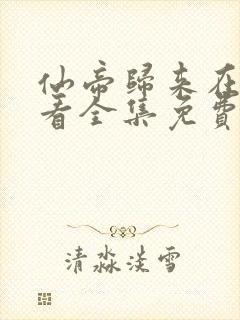 仙帝歸来在
看全集免費
清淼淡雪